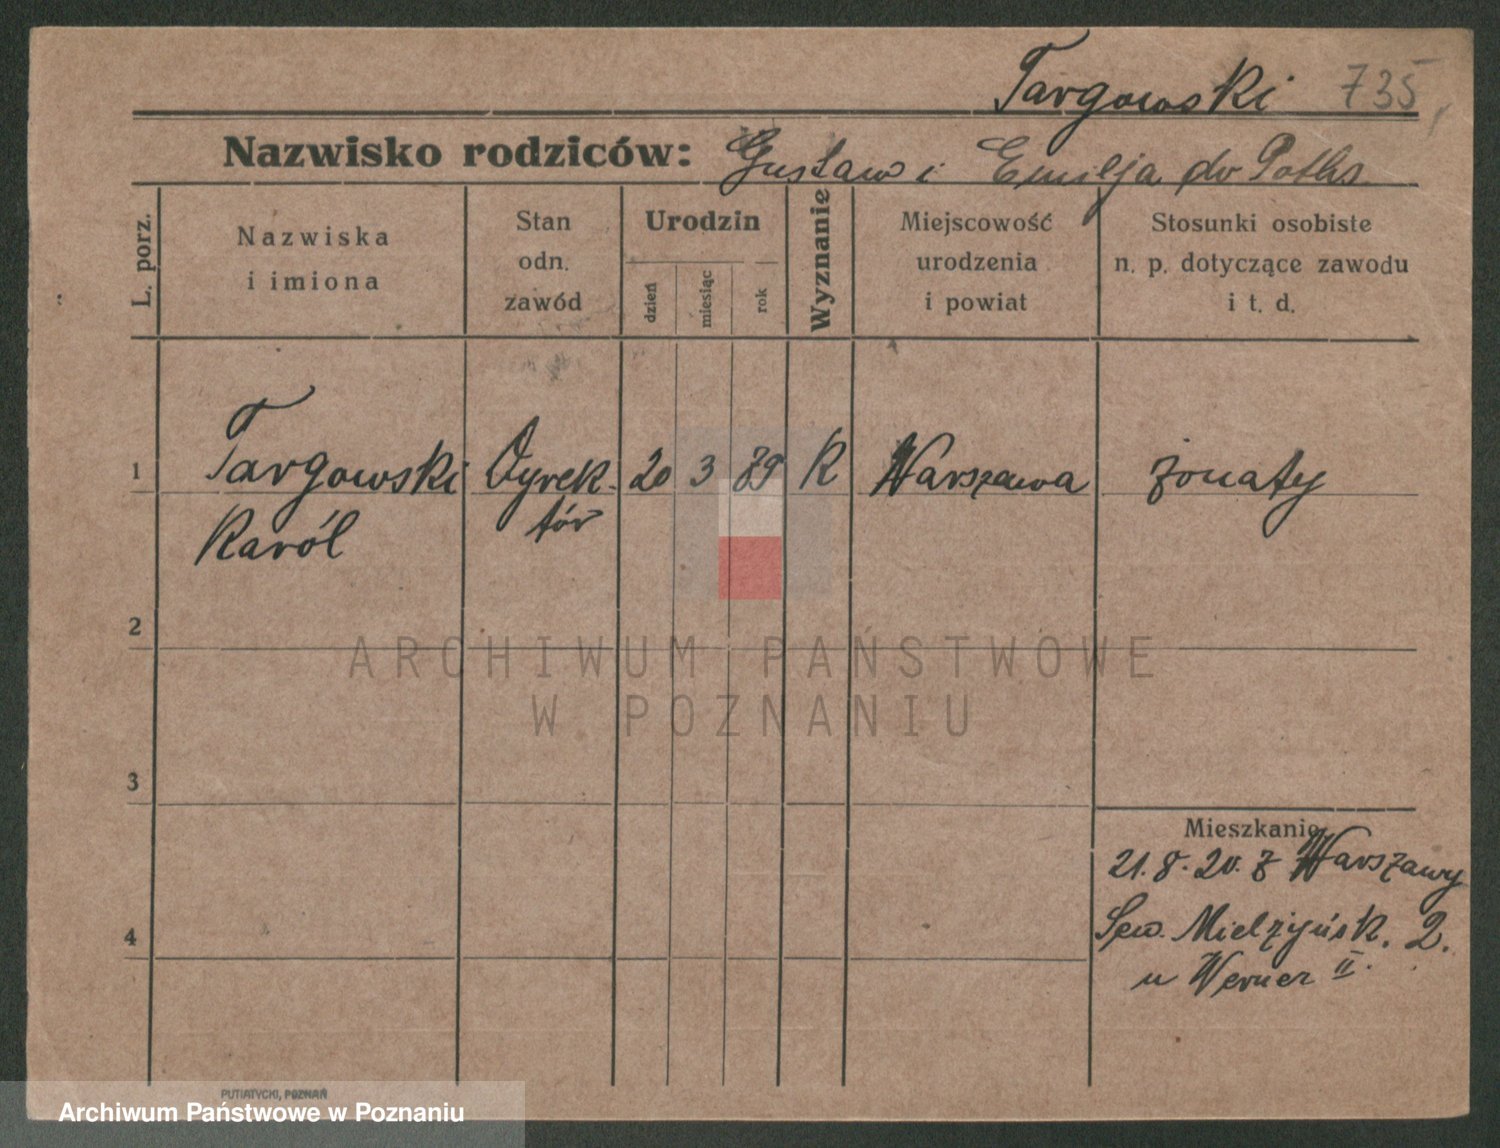 Targowski 735
Nazwisko rodziców: Gustaw i Emilja dv Poths
L. porz.
Nazwiska
i imiona
Stan
odn.
zawód
Urodzin
dzień
miesiąc
rok
Wyznanie
Miejscowość
urodzenia
i powiat
Stosunki osobiste
n. p. dotyczące zawodu
i t. d.
1 Targowski Dyrek- 20 3 89 K Warszawa żonaty
Karól tór
2
ARCHIWUM PAŃSTWOWE
W POZNANIU
3
Mieszkanie
21.8.20. z Warszawy
Sew. Mielżyńsk. 2.
4
u Werner II.
PUTIATYCKI, POZNAŃ
Archiwum Państwowe w Poznaniu